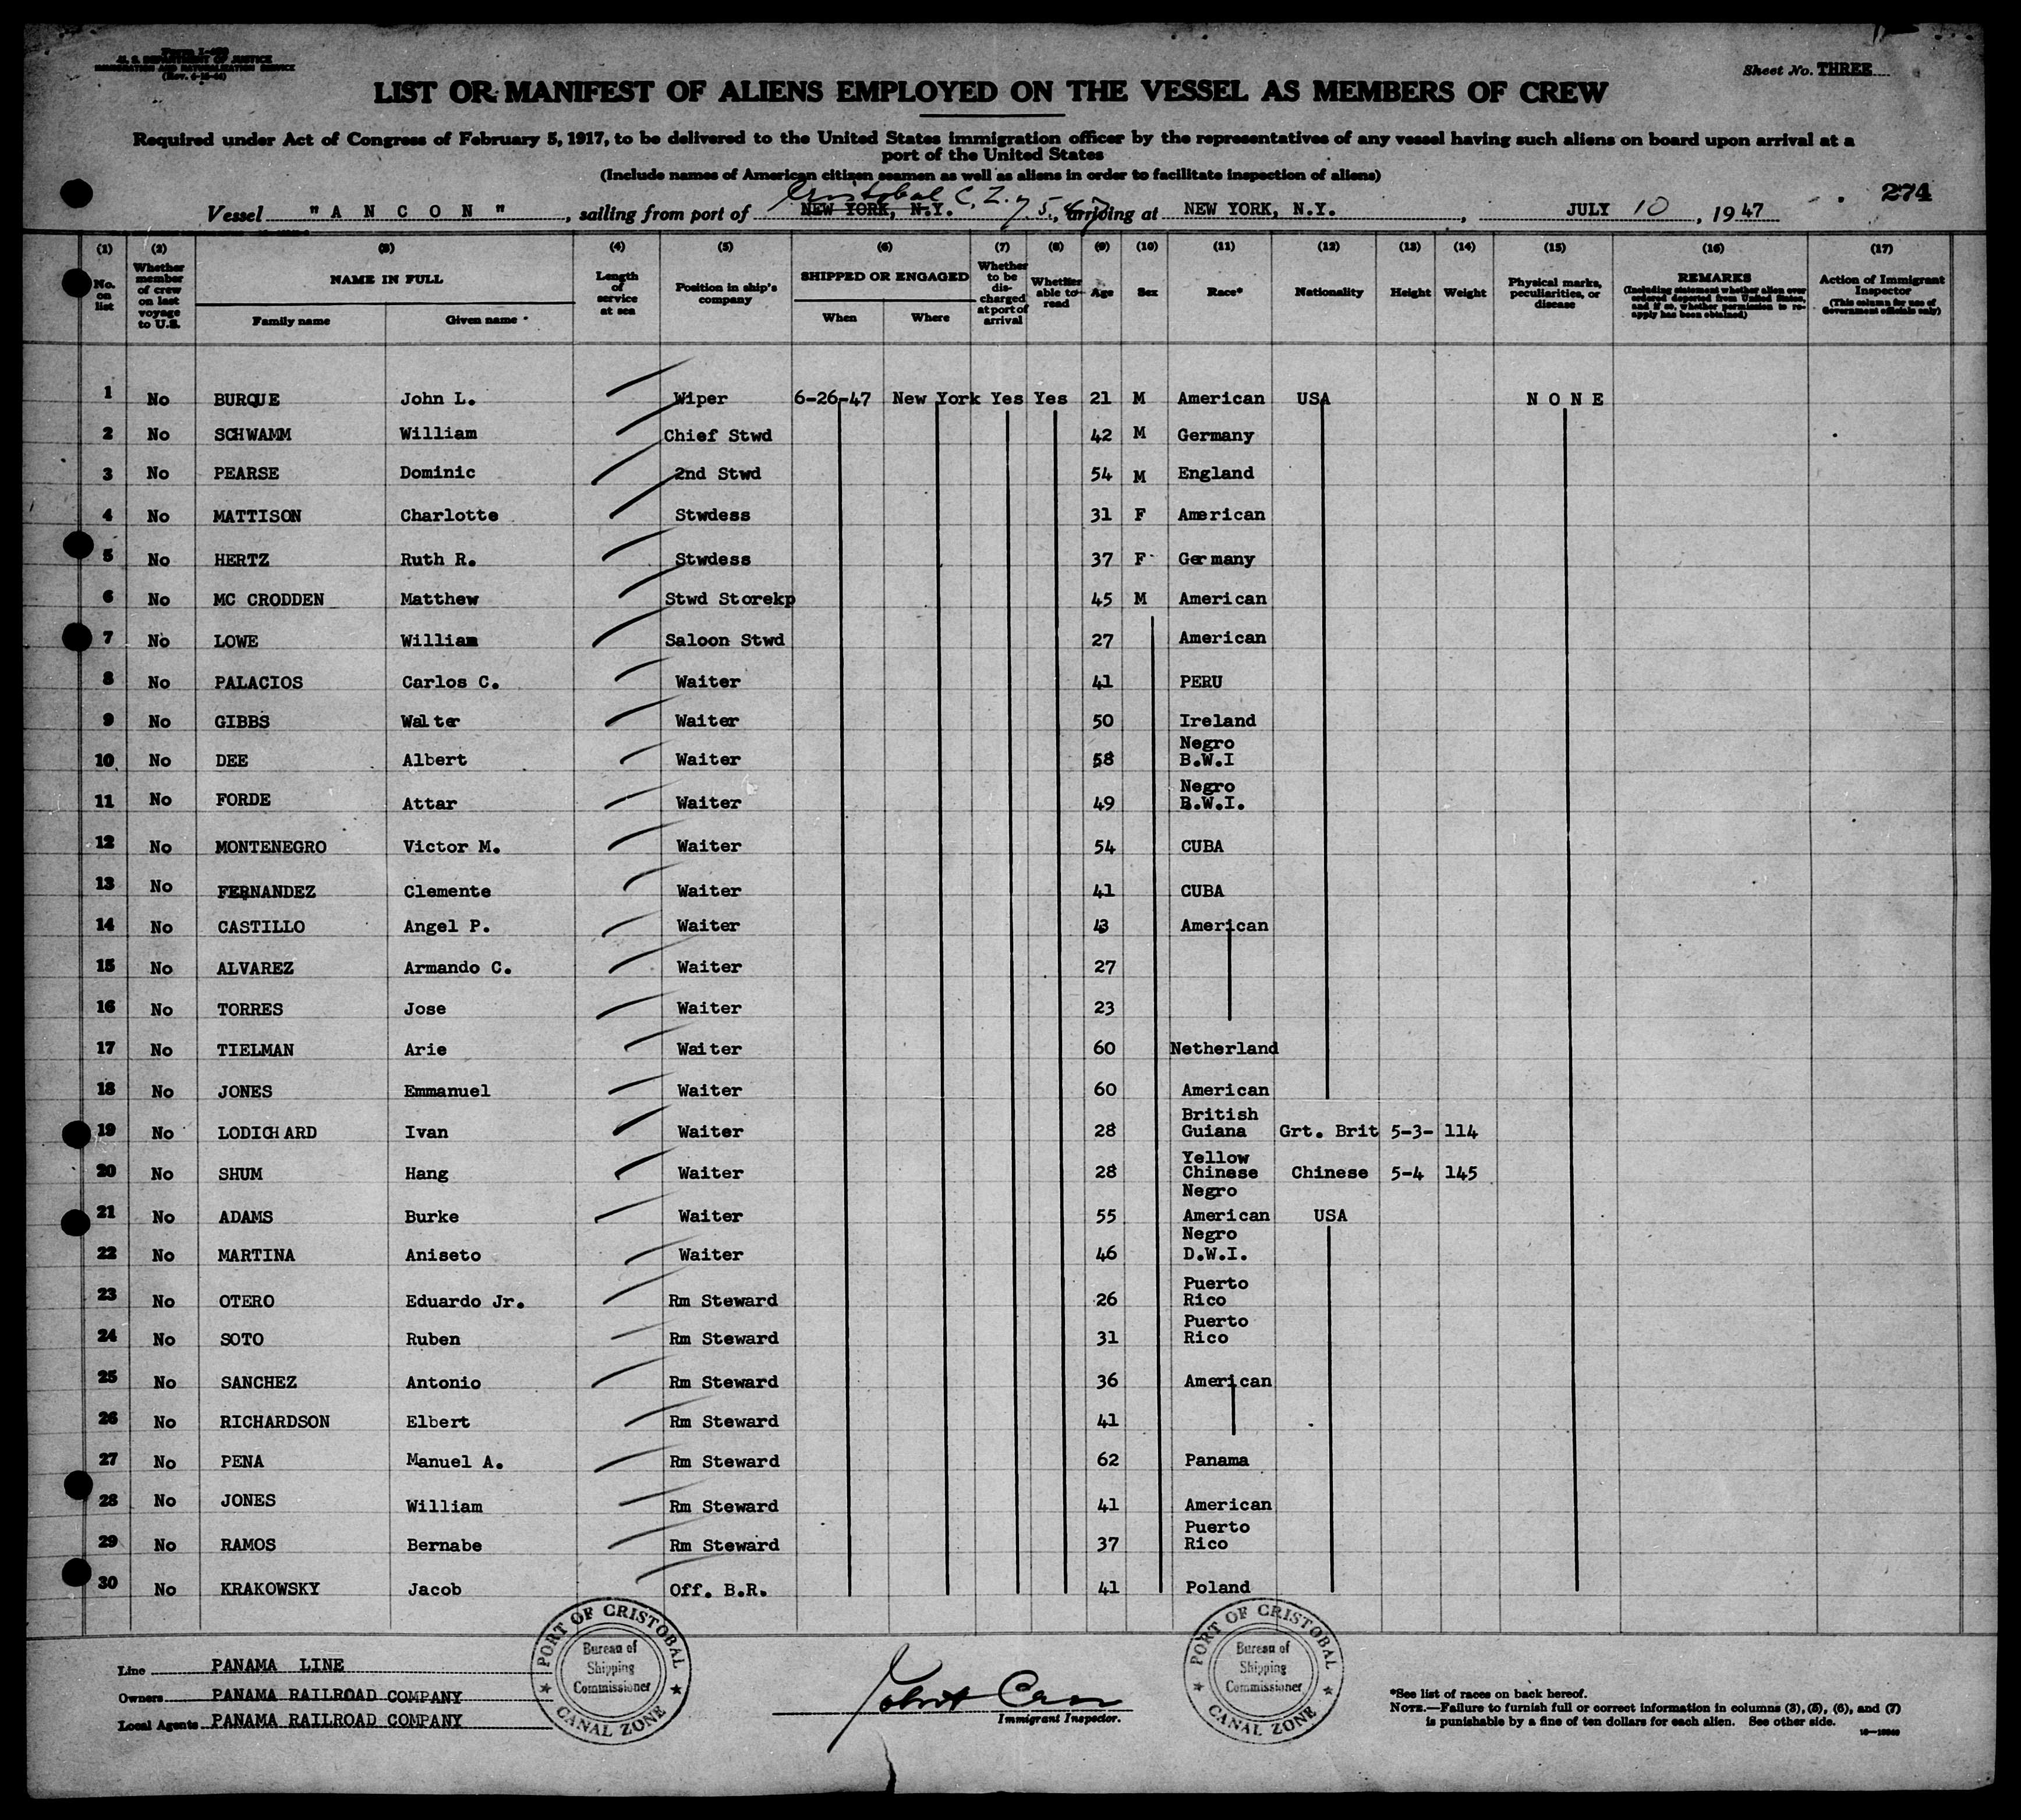 Form I-480
U. S. DEPARTMENT OF JUSTICE
IMMIGRATION AND NATURALIZATION SERVICE
Sheet No. THREE
LIST OR MANIFEST OF ALIENS EMPLOYED ON THE VESSEL AS MEMBERS OF CREW
Required under Act of Congress of February 5, 1917, to be delivered to the United States immigration officer by the representatives of any vessel having such aliens on board upon arrival at a
port of the United States
(Include names of American citizen seamen as well as aliens in order to facilitate inspection of aliens)
274
Cristobal C. Z.
Vessel " A N C O N " , sailing from port of NEW YORK, N.Y. 7, 5, 47, arriving at NEW YORK, N.Y. , JULY 10 , 1947
(1) (2) (3) (4) (5) (6) (7) (8) (9) (10) (11) (12) (13) (14) (15) (16) (17)
No. on list Whether member of crew on last voyage to U.S. NAME IN FULL Length of service at sea Position in ship's company SHIPPED OR ENGAGED Whether to be discharged at port of arrival Whether able to read Age Sex Race* Nationality Height Weight Physical marks, peculiarities, or disease REMARKS (Including statement whether alien ever ordered deported from United States, and if so, whether permission to reapply has been obtained) Action of Immigrant Inspector (This column for use of Government officials only)
Family name Given name When Where
1 No BURQUE John L. Wiper 6-26-47 New York Yes Yes 21 M American USA N O N E
2 No SCHWAMM William Chief Stwd 42 M Germany
3 No PEARSE Dominic 2nd Stwd 54 M England
4 No MATTISON Charlotte Stwdess 31 F American
5 No HERTZ Ruth R. Stwdess 37 F Germany
6 No MC CRODDEN Matthew Stwd Storekp 45 M American
7 No LOWE William Saloon Stwd 27 American
8 No PALACIOS Carlos C. Waiter 41 PERU
9 No GIBBS Walter Waiter 50 Ireland
10 No DEE Albert Waiter 58 Negro B.W.I
11 No FORDE Attar Waiter 49 Negro B.W.I.
12 No MONTENEGRO Victor M. Waiter 54 CUBA
13 No FERNANDEZ Clemente Waiter 41 CUBA
14 No CASTILLO Angel P. Waiter 43 American
15 No ALVAREZ Armando C. Waiter 27
16 No TORRES Jose Waiter 23
17 No TIELMAN Arie Waiter 60 Netherland
18 No JONES Emmanuel Waiter 60 American
19 No LODICHARD Ivan Waiter 28 British Guiana Grt. Brit 5-3- 114
20 No SHUM Hang Waiter 28 Yellow Chinese Chinese 5-4 145
21 No ADAMS Burke Waiter 55 Negro American USA
22 No MARTINA Aniseto Waiter 46 Negro D.W.I.
23 No OTERO Eduardo Jr. Rm Steward 26 Puerto Rico
24 No SOTO Ruben Rm Steward 31 Puerto Rico
25 No SANCHEZ Antonio Rm Steward 36 American
26 No RICHARDSON Elbert Rm Steward 41
27 No PENA Manuel A. Rm Steward 62 Panama
28 No JONES William Rm Steward 41 American
29 No RAMOS Bernabe Rm Steward 37 Puerto Rico
30 No KRAKOWSKY Jacob Off. B.R. 41 Poland
Line PANAMA LINE
Owners PANAMA RAILROAD COMPANY
Local Agents PANAMA RAILROAD COMPANY
PORT OF CRISTOBAL
Bureau of
Shipping
Commissioner
CANAL ZONE
Immigrant Inspector.
PORT OF CRISTOBAL
Bureau of
Shipping
Commissioner
CANAL ZONE
*See list of races on back hereof.
NOTE.—Failure to furnish full or correct information in columns (3), (5), (6), and (7)
is punishable by a fine of ten dollars for each alien. See other side.